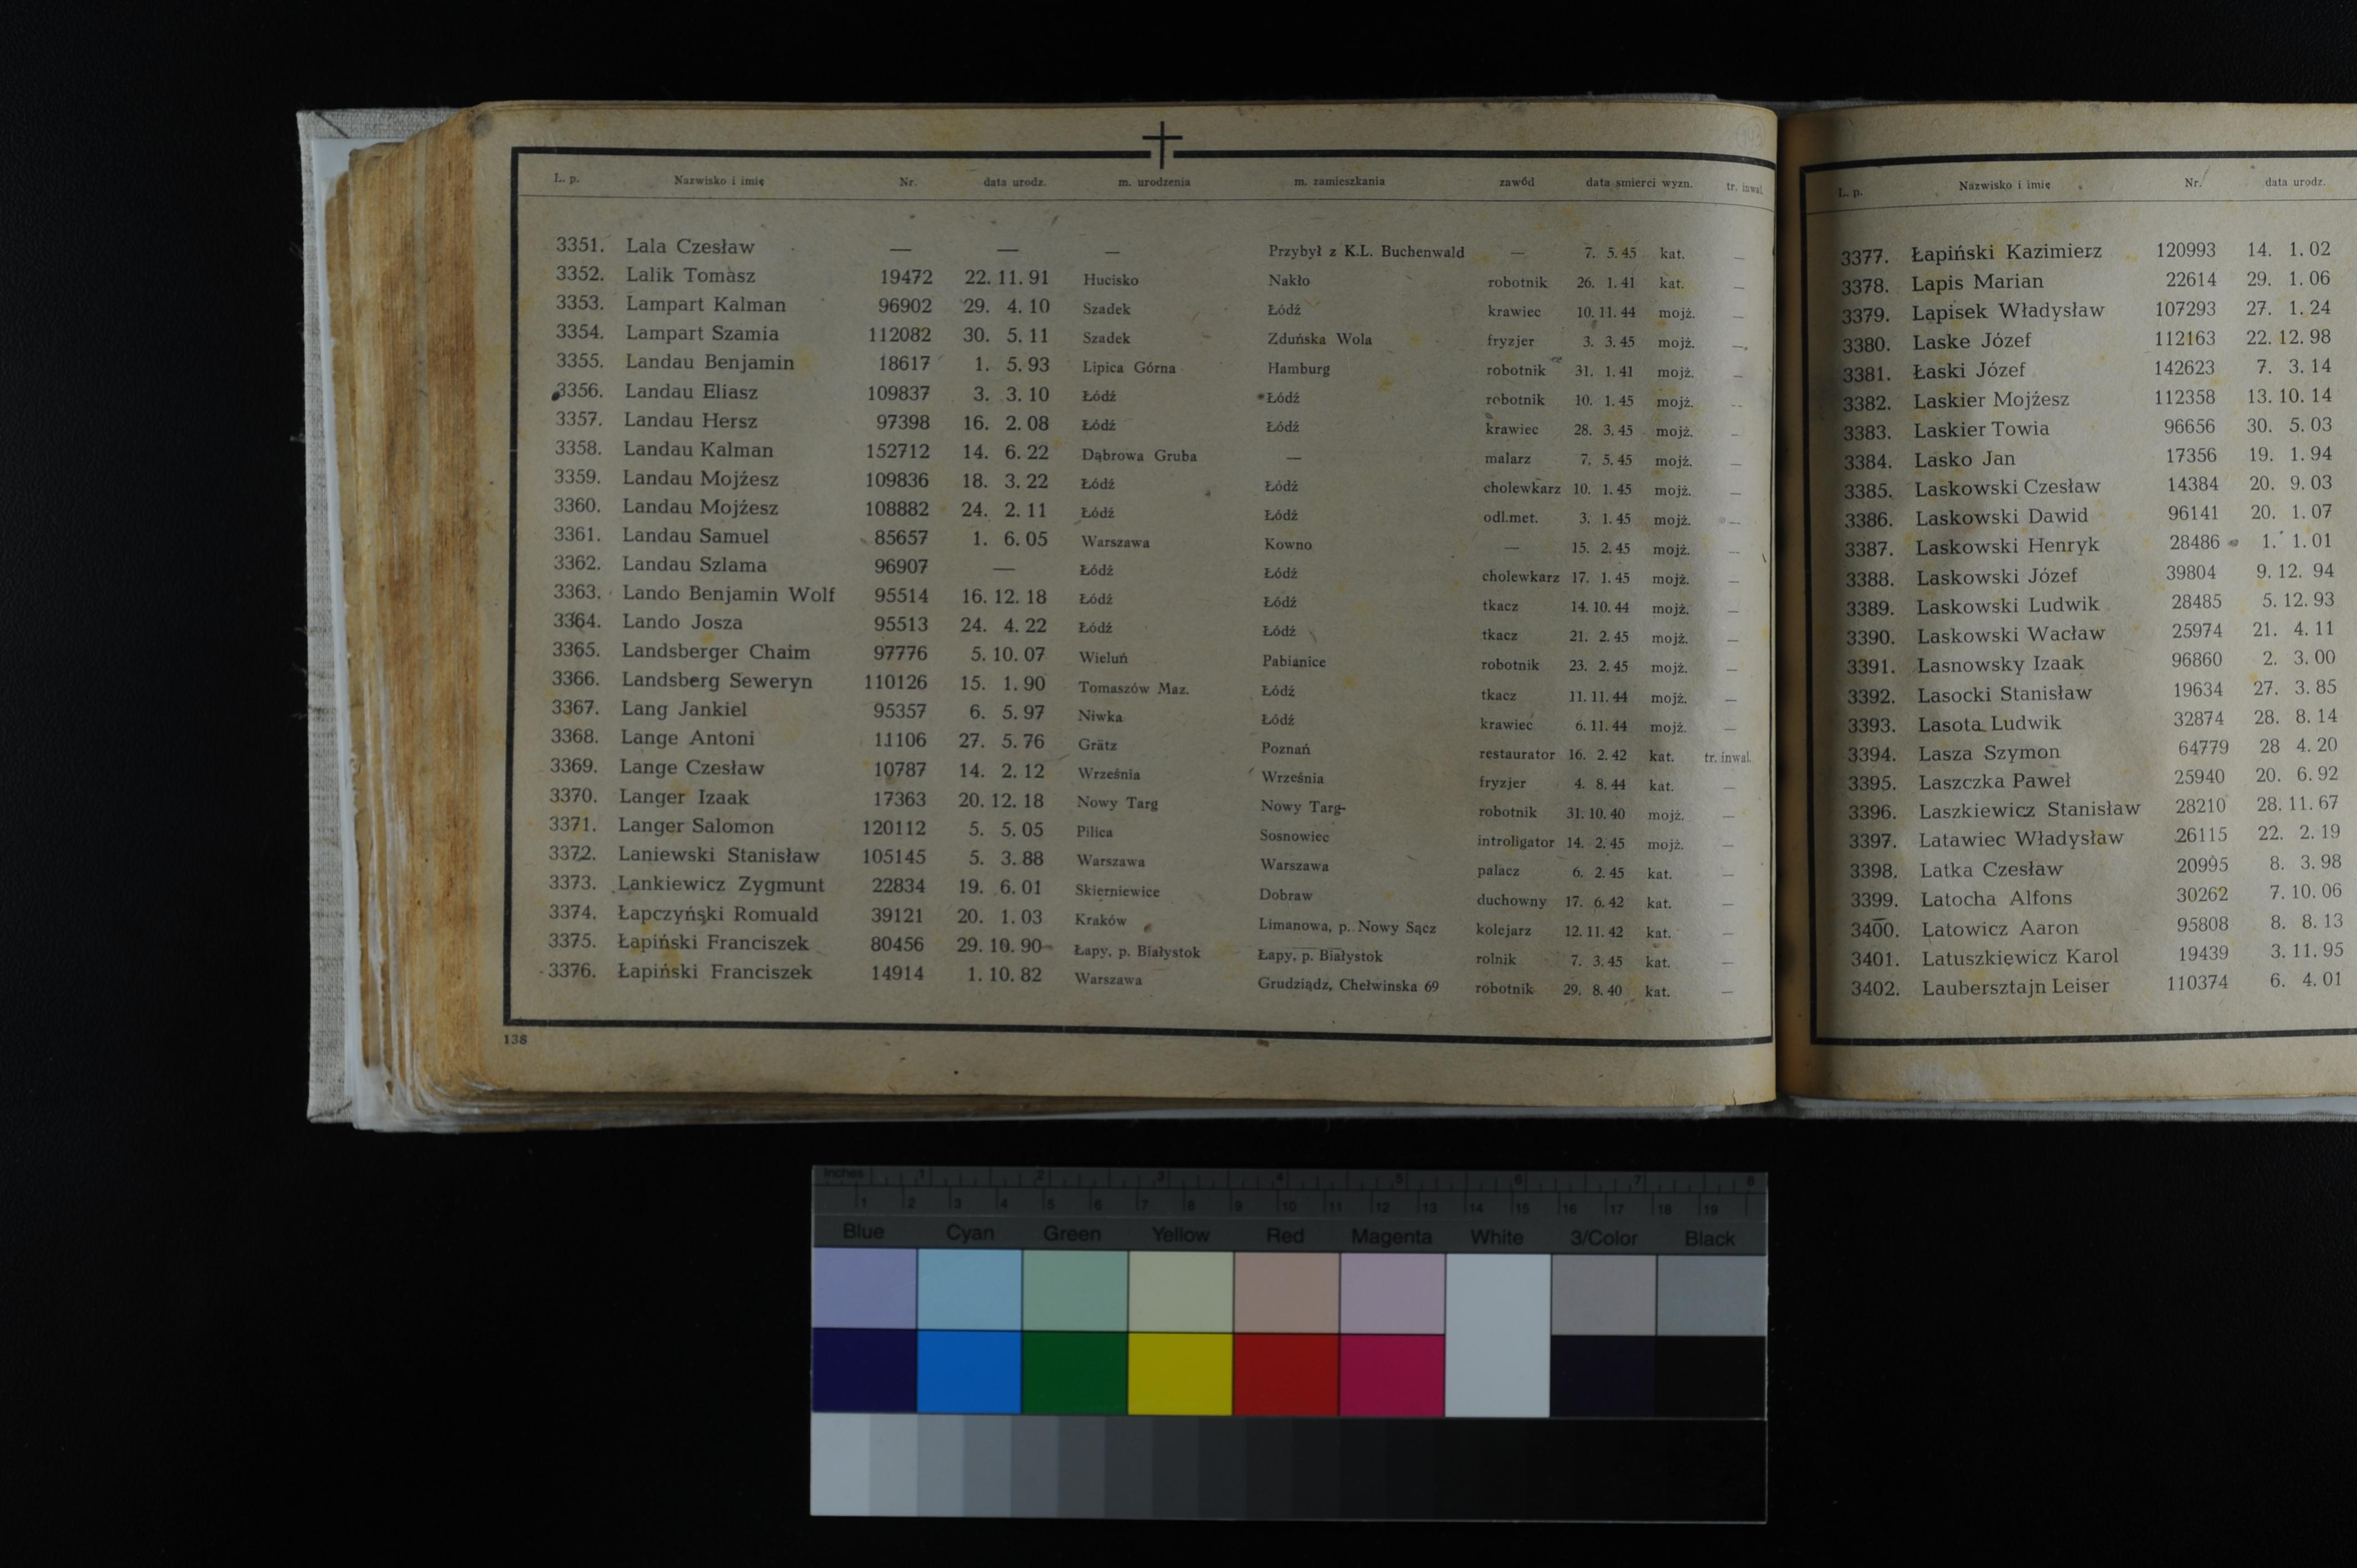 L. p. Nazwisko i imię Nr. data urodz. m. urodzenia m. zamieszkania zawód data smierci wyzn. tr. inwal.
3351. Lala Czesław — — — Przybył z K.L. Buchenwald — 7. 5. 45 kat. —
3352. Lalik Tomasz 19472 22. 11. 91 Hucisko Nakło robotnik 26. 1. 41 kat. —
3353. Lampart Kalman 96902 29. 4. 10 Szadek Łódź krawiec 10. 11. 44 mojż. —
3354. Lampart Szamia 112082 30. 5. 11 Szadek Zduńska Wola fryzjer 3. 3. 45 mojż. —
3355. Landau Benjamin 18617 1. 5. 93 Lipica Górna Hamburg robotnik 31. 1. 41 mojż. —
3356. Landau Eliasz 109837 3. 3. 10 Łódź Łódź robotnik 10. 1. 45 mojż. —
3357. Landau Hersz 97398 16. 2. 08 Łódź Łódź krawiec 28. 3. 45 mojż. —
3358. Landau Kalman 152712 14. 6. 22 Dąbrowa Gruba — malarz 7. 5. 45 mojż. —
3359. Landau Mojżesz 109836 18. 3. 22 Łódź Łódź cholewkarz 10. 1. 45 mojż. —
3360. Landau Mojżesz 108882 24. 2. 11 Łódź Łódź odl.met. 3. 1. 45 mojż. —
3361. Landau Samuel 85657 1. 6. 05 Warszawa Kowno — 15. 2. 45 mojż. —
3362. Landau Szlama 96907 — Łódź Łódź cholewkarz 17. 1. 45 mojż. —
3363. Lando Benjamin Wolf 95514 16. 12. 18 Łódź Łódź tkacz 14. 10. 44 mojż. —
3364. Lando Josza 95513 24. 4. 22 Łódź Łódź tkacz 21. 2. 45 mojż. —
3365. Landsberger Chaim 97776 5. 10. 07 Wieluń Pabianice robotnik 23. 2. 45 mojż. —
3366. Landsberg Seweryn 110126 15. 1. 90 Tomaszów Maz. Łódź tkacz 11. 11. 44 mojż. —
3367. Lang Jankiel 95357 6. 5. 97 Niwka Łódź krawiec 6. 11. 44 mojż. —
3368. Lange Antoni 11106 27. 5. 76 Grätz Poznań restaurator 16. 2. 42 kat. tr. inwal.
3369. Lange Czesław 10787 14. 2. 12 Września Września fryzjer 4. 8. 44 kat. —
3370. Langer Izaak 17363 20. 12. 18 Nowy Targ Nowy Targ robotnik 31. 10. 40 mojż. —
3371. Langer Salomon 120112 5. 5. 05 Pilica Sosnowiec introligator 14. 2. 45 mojż. —
3372. Laniewski Stanisław 105145 5. 3. 88 Warszawa Warszawa palacz 6. 2. 45 kat. —
3373. Lankiewicz Zygmunt 22834 19. 6. 01 Skierniewice Dobraw duchowny 17. 6. 42 kat. —
3374. Łapczyński Romuald 39121 20. 1. 03 Kraków Limanowa, p. Nowy Sącz kolejarz 12. 11. 42 kat. —
3375. Łapiński Franciszek 80456 29. 10. 90 Łapy, p. Białystok Łapy, p. Białystok rolnik 7. 3. 45 kat. —
3376. Łapiński Franciszek 14914 1. 10. 82 Warszawa Grudziądz, Chełwinska 69 robotnik 29. 8. 40 kat. —
138
L. p. Nazwisko i imię Nr. data urodz.
3377. Łapiński Kazimierz 120993 14. 1. 02
3378. Lapis Marian 22614 29. 1. 06
3379. Lapisek Władysław 107293 27. 1. 24
3380. Laske Józef 112163 22. 12. 98
3381. Łaski Józef 142623 7. 3. 14
3382. Laskier Mojżesz 112358 13. 10. 14
3383. Laskier Towia 96656 30. 5. 03
3384. Lasko Jan 17356 19. 1. 94
3385. Laskowski Czesław 14384 20. 9. 03
3386. Laskowski Dawid 96141 20. 1. 07
3387. Laskowski Henryk 28486 1. 1. 01
3388. Laskowski Józef 39804 9. 12. 94
3389. Laskowski Ludwik 28485 5. 12. 93
3390. Laskowski Wacław 25974 21. 4. 11
3391. Lasnowsky Izaak 96860 2. 3. 00
3392. Lasocki Stanisław 19634 27. 3. 85
3393. Lasota Ludwik 32874 28. 8. 14
3394. Lasza Szymon 64779 28 4. 20
3395. Laszczka Paweł 25940 20. 6. 92
3396. Laszkiewicz Stanisław 28210 28. 11. 67
3397. Latawiec Władysław 26115 22. 2. 19
3398. Latka Czesław 20995 8. 3. 98
3399. Latocha Alfons 30262 7. 10. 06
3400. Latowicz Aaron 95808 8. 8. 13
3401. Latuszkiewicz Karol 19439 3. 11. 95
3402. Laubersztajn Leiser 110374 6. 4. 01
Inches 1 2 3 4 5 6 7 8
1 2 3 4 5 6 7 8 9 10 11 12 13 14 15 16 17 18 19
Blue Cyan Green Yellow Red Magenta White 3/Color Black